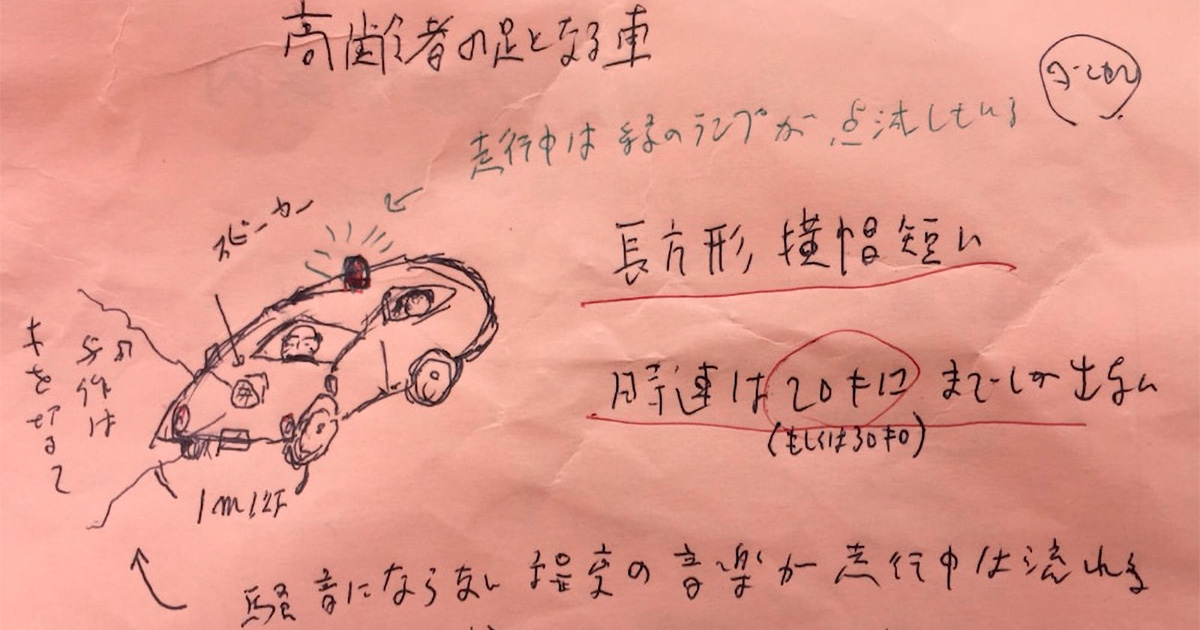 高齢者の足となる車
走行中は緑のランプが点滅している
スピーカー
長方形 横幅短い
時速は20キロまでしか出ない
(もしくは30キロ)
1m以下
騒音にならない程度の音楽が走行中は流れる